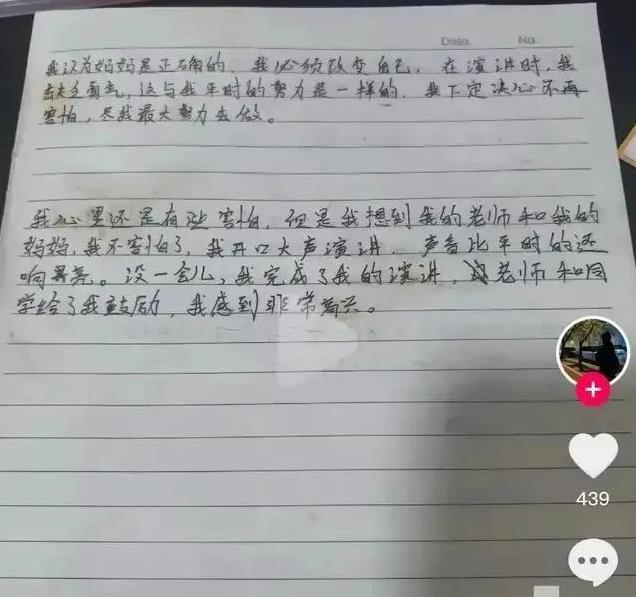 Date. No.
我认为妈妈是正确的，我必须改变自己，在演讲时，我
缺乏勇气，这与我平时的努力是一样的，我下定决心不再
害怕，尽我最大努力去做。
我心里还是有些害怕，但是我想到我的老师和我的
妈妈，我不害怕了，我开口大声演讲，声音比平时的还
响亮。没一会儿，我完成了我的演讲，老师和同
学给了我鼓励，我感到非常高兴。
439